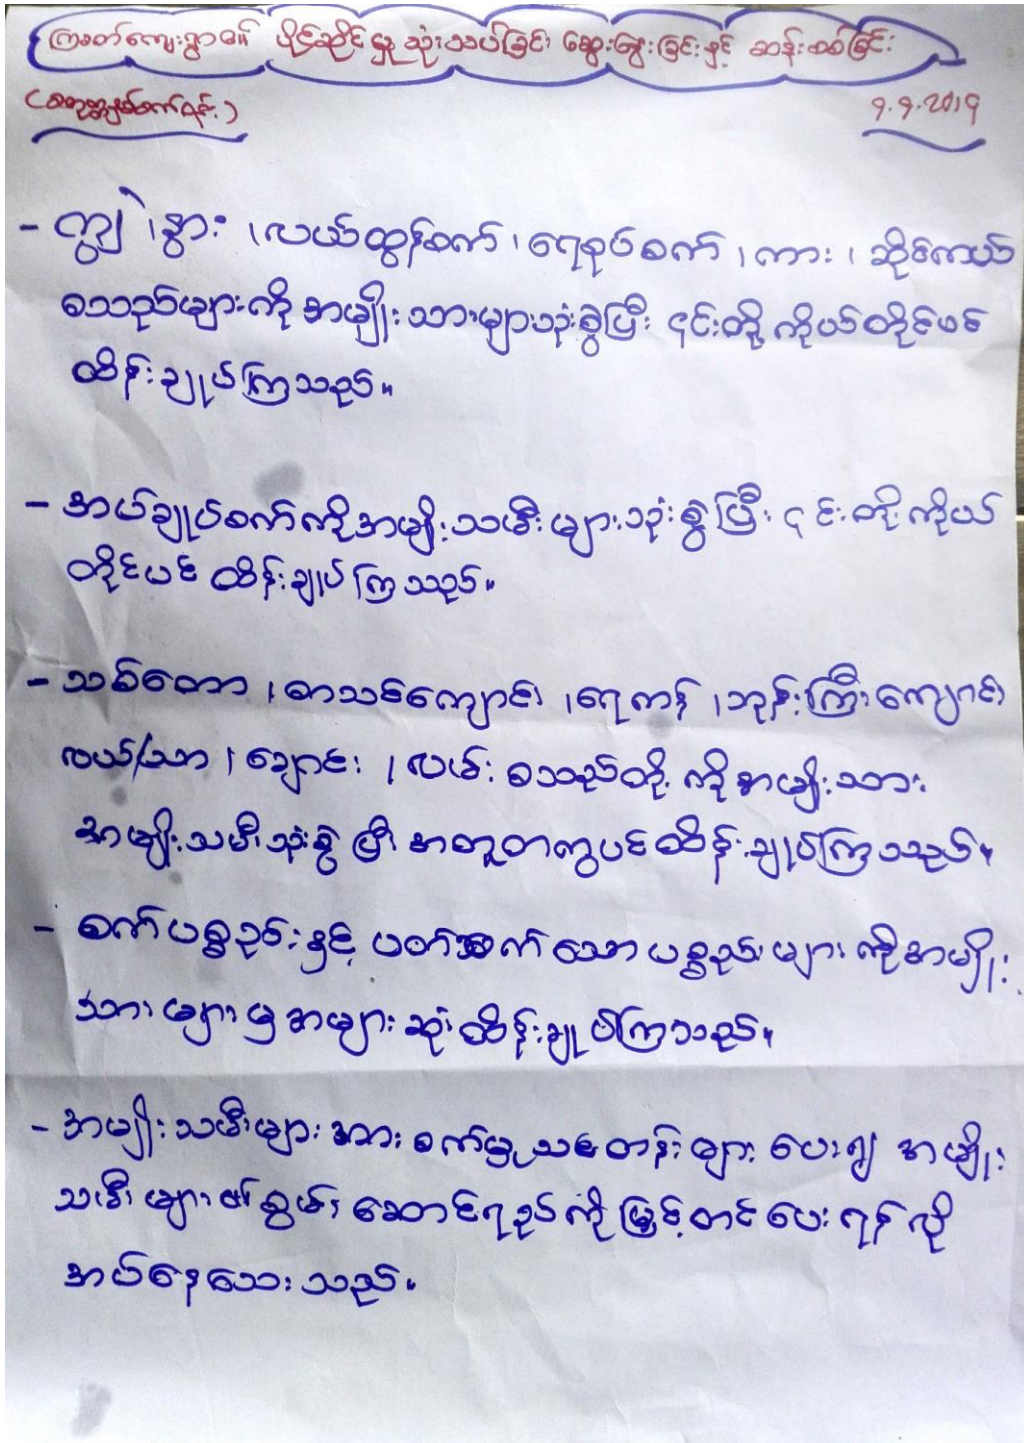 ကြခတ်ကျေးရွာ၏ ပိုင်ဆိုင်မှု သုံးသပ်ခြင်း ဆွေးနွေးခြင်းနှင့် ဆန်းစစ်ခြင်း
၇.၇.2019
- ကျွဲ၊ နွား ၊လယ်ထွန်စက်၊ ရေစုပ်စက် ၊ကား ၊ ဆိုင်ကယ်
စသည်များကို အမျိုးသားများသုံးစွဲပြီး ၎င်းတို့ ကိုယ်တိုင်ပင်
ထိန်းချုပ်ကြသည်။
- အပ်ချုပ်စက်ကို အမျိုးသမီးများသုံးစွဲပြီး ၎င်းတို့ကိုယ်
တိုင်ပင် ထိန်းချုပ်ကြသည်။
- သစ်တော ၊စာသင်ကျောင်း ၊ရေကန် ၊ဘုန်းကြီးကျောင်း
လယ်/ယာ ၊ ချောင်း ၊လမ်း စသည်တို့ကို အမျိုးသား
အမျိုးသမီးသုံးစွဲပြီး အတူတကွပင်ထိန်းချုပ်ကြသည်။
- စက်ပစ္စည်းနှင့် ပတ်သက်သောပစ္စည်းများကို အမျိုး
သားများမှအများဆုံးထိန်းချုပ်ကြသည်။
- အမျိုးသမီးများအား စက်မှုသင်တန်းများ ပေး၍ အမျိုး
သမီးများ၏စွမ်းဆောင်ရည်ကို မြှင့်တင်ပေးရန်လို
အပ်နေသေးသည်။